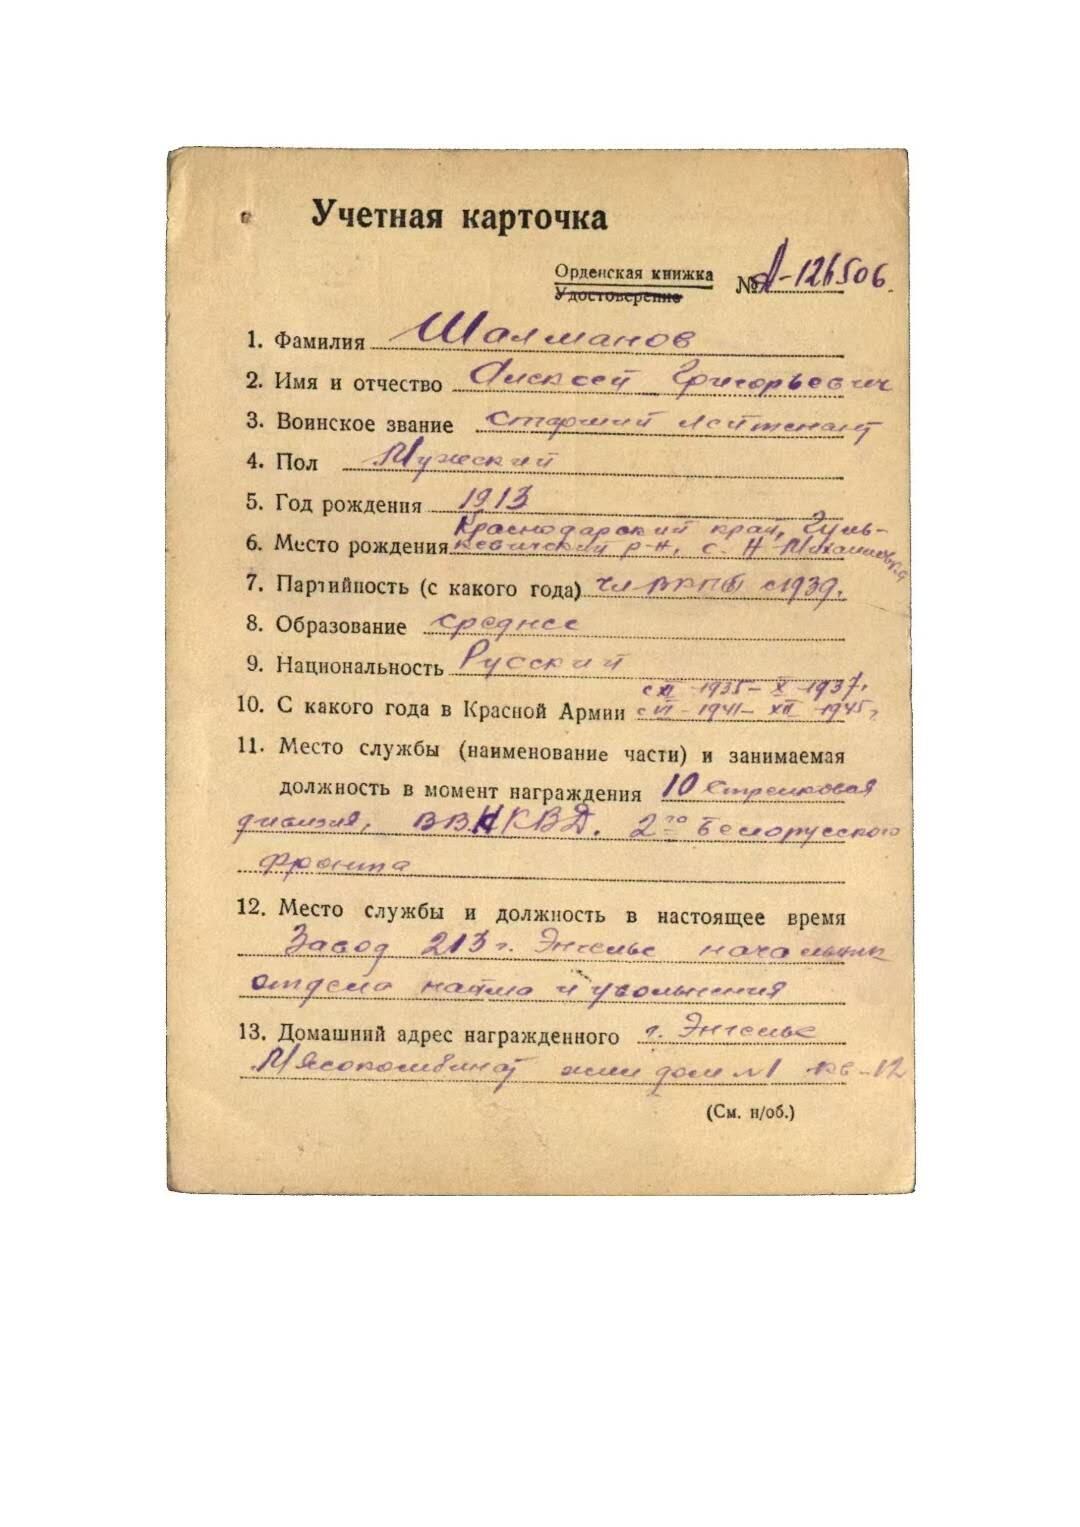 Учетная карточка
Орденская книжка
Удостоверение
№ А-126506.
1. Фамилия Шалманов
2. Имя и отчество Алексей Григорьевич
3. Воинское звание старший лейтенант
4. Пол Мужский
5. Год рождения 1913
Краснодарский край, Гуль-
6. Место рождения кевичский р-н, с. Н Михайловка
7. Партийность (с какого года) чл ВКПб с 1939.
8. Образование среднее
9. Национальность Русский
с XI -1935- X -1937г.
10. С какого года в Красной Армии с VI -1941- XII -1945г,
11. Место службы (наименование части) и занимаемая
должность в момент награждения 10 стрелковая
дивизия, ВВНКВД. 2го Белорусского
фронта
12. Место службы и должность в настоящее время
Завод 213 г. Энгельс начальник
отдела найма и увольнения
13. Домашний адрес награжденного г. Энгельс
Мясокомбинат дом №1 кв-12
(См. н/об.)